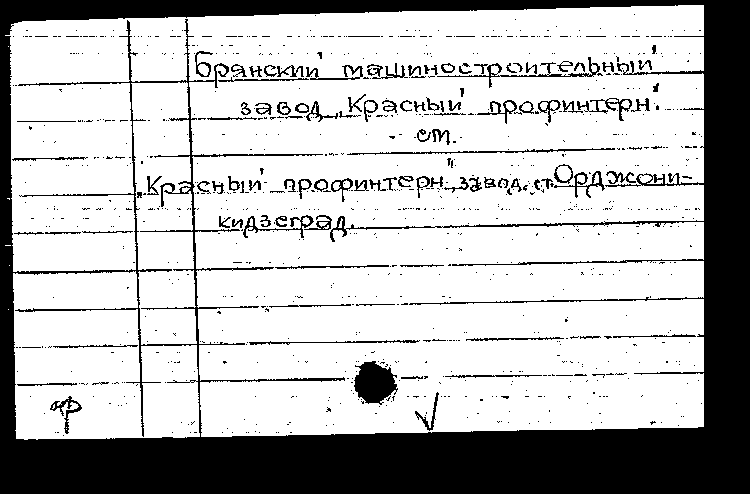 Брянский машиностроительный
завод „Красный профинтерн".
см.
„Красный профинтерн", завод, ст. Орджони-
кидзеград.